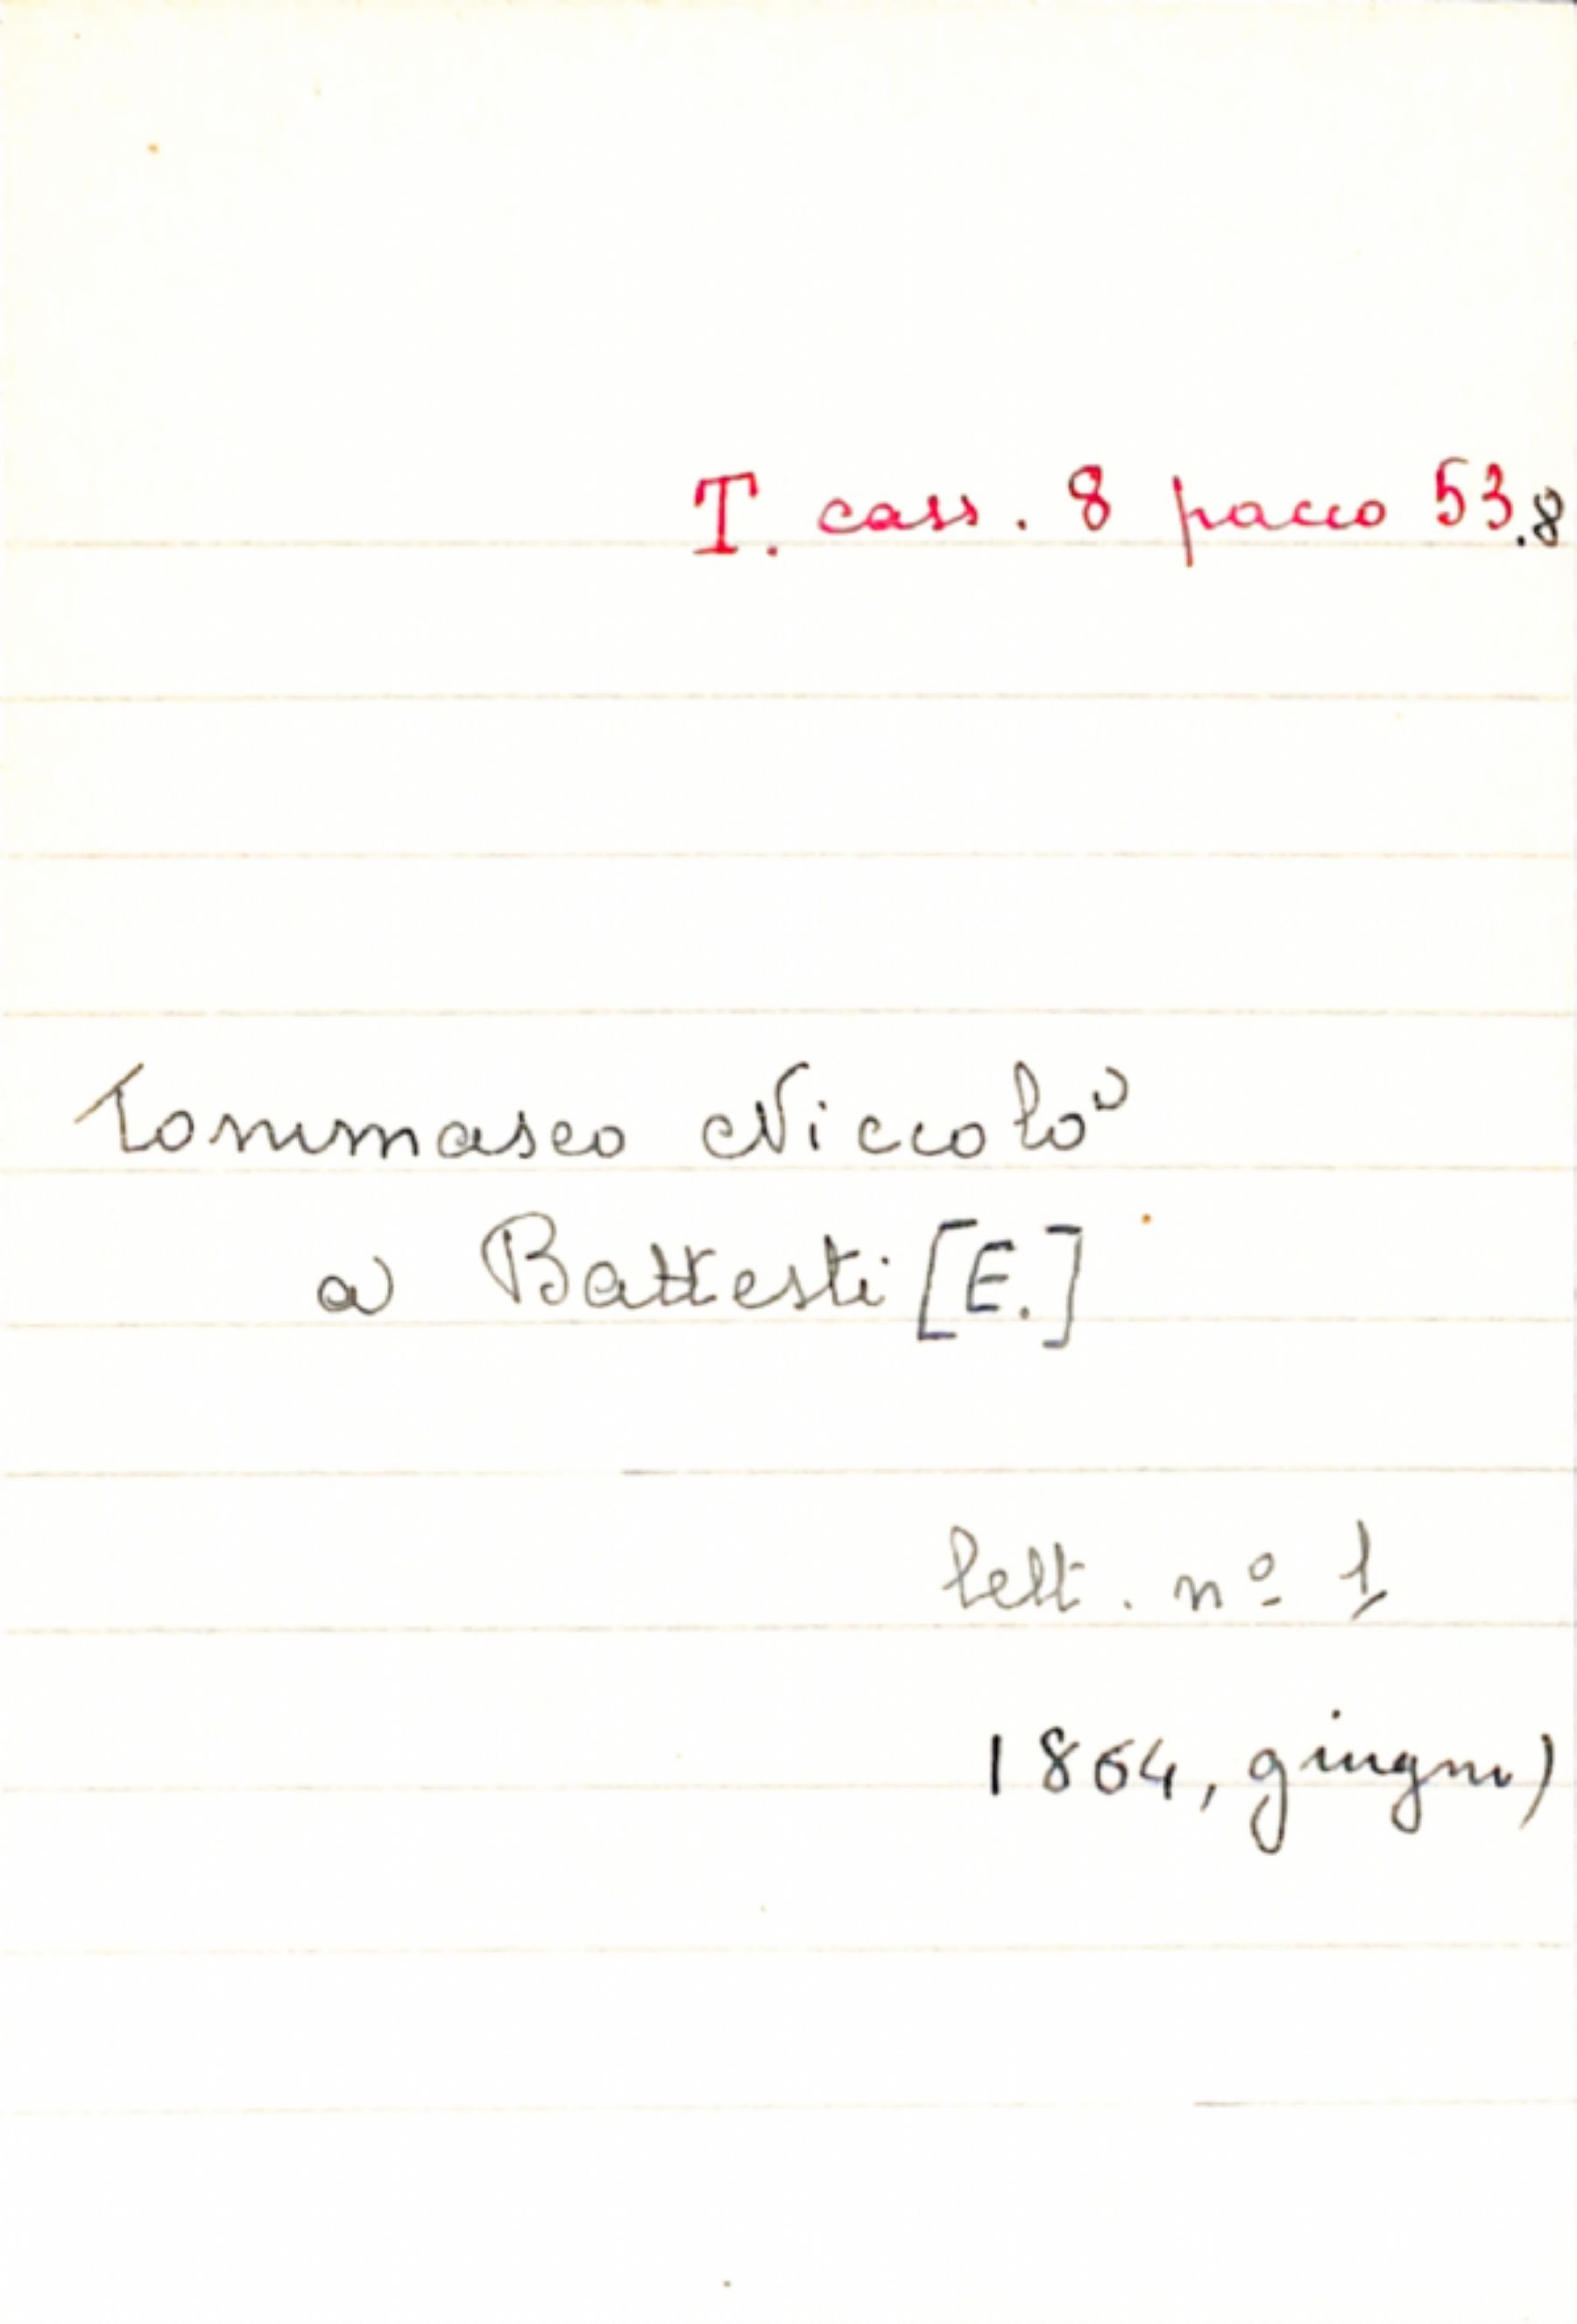 T. cass. 8 pacco 53.8
Tommaseo Niccolò
a Battesti [E.]
lett. nº 1
1864, giugno)